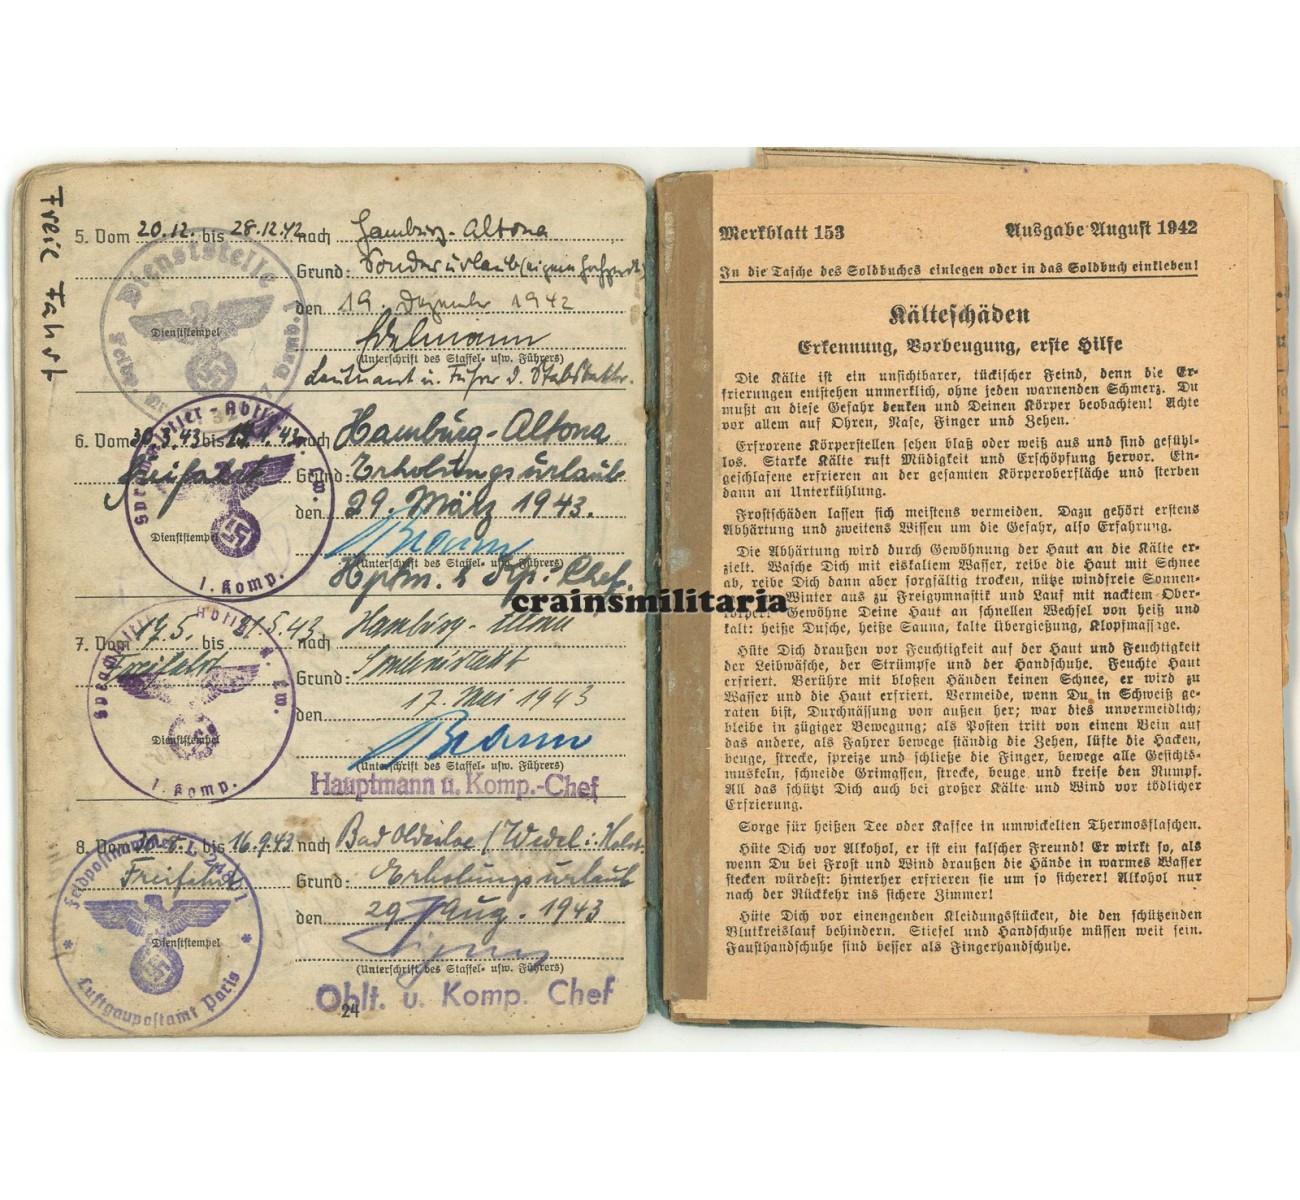 Freie Fahrt
5. Vom 20.12. bis 28.12.42 nach Hamburg-Altona
Grund: Sonderurlaub (eigene Hochzeit)
den 19. Dezember 1942
Dienststempel
Edelmann
(Unterschrift des Staffel- usw. Führers)
Leutnant u. Führer d. Stabsbattr.
Dienststelle
6. Vom 30.3.43 bis 43 nach Hamburg-Altona
Freifahrt Grund: Erholungsurlaub
den 29. März 1943.
Dienststempel
Braun
(Unterschrift des Staffel- usw. Führers)
Hptm. u. Kp.-Chef.
1. Komp.
7. Vom 17.5. bis 21.5.43 nach Hamburg-Altona
Freifahrt Grund:
den 17. Mai 1943
Dienststempel
Braun
(Unterschrift des Staffel- usw. Führers)
Hauptmann u. Komp.-Chef
1. Komp.
8. Vom bis 16.9.43 nach Bad Oldesloe / Wedel i. Holst.
Freifahrt Grund: Erholungsurlaub
den 29. Aug. 1943
Dienststempel
(Unterschrift des Staffel- usw. Führers)
Oblt. u. Komp. Chef
Feldpostnummer L
Luftgaupostamt Paris
24
Merkblatt 153 Ausgabe August 1942
In die Tasche des Soldbuches einlegen oder in das Soldbuch einkleben!
Kälteschäden
Erkennung, Vorbeugung, erste Hilfe
Die Kälte ist ein unsichtbarer, tückischer Feind, denn die Er-
frierungen entstehen unmerklich, ohne jeden warnenden Schmerz. Du
mußt an diese Gefahr denken und Deinen Körper beobachten! Achte
vor allem auf Ohren, Nase, Finger und Zehen.
Erfrorene Körperstellen sehen blaß oder weiß aus und sind gefühl-
los. Starke Kälte ruft Müdigkeit und Erschöpfung hervor. Ein-
geschlafene erfrieren an der gesamten Körperoberfläche und sterben
dann an Unterkühlung.
Frostschäden lassen sich meistens vermeiden. Dazu gehört erstens
Abhärtung und zweitens Wissen um die Gefahr, also Erfahrung.
Die Abhärtung wird durch Gewöhnung der Haut an die Kälte er-
zielt. Wasche Dich mit eiskaltem Wasser, reibe die Haut mit Schnee
ab, reibe Dich dann aber sorgfältig trocken, nütze windfreie Sonnen-
Winter aus zu Freigymnastik und Lauf mit nacktem Ober-
körper! Gewöhne Deine Haut an schnellen Wechsel von heiß und
kalt: heiße Dusche, heiße Sauna, kalte Übergießung, Klopfmassage.
Hüte Dich draußen vor Feuchtigkeit auf der Haut und Feuchtigkeit
der Leibwäsche, der Strümpfe und der Handschuhe. Feuchte Haut
erfriert. Berühre mit bloßen Händen keinen Schnee, er wird zu
Wasser und die Haut erfriert. Vermeide, wenn Du in Schweiß ge-
raten bist, Durchnässung von außen her; war dies unvermeidlich;
bleibe in zügiger Bewegung; als Posten tritt von einem Bein auf
das andere, als Fahrer bewege ständig die Zehen, lüfte die Hacken,
beuge, strecke, spreize und schließe die Finger, bewege alle Gesichts-
muskeln, schneide Grimassen, strecke, beuge und kreise den Rumpf.
All das schützt Dich auch bei großer Kälte und Wind vor tödlicher
Erfrierung.
Sorge für heißen Tee oder Kaffee in umwickelten Thermosflaschen.
Hüte Dich vor Alkohol, er ist ein falscher Freund! Er wirkt so, als
wenn Du bei Frost und Wind draußen die Hände in warmes Wasser
stecken würdest: hinterher erfrieren sie um so sicherer! Alkohol nur
nach der Rückkehr ins sichere Zimmer!
Hüte Dich vor einengenden Kleidungsstücken, die den schützenden
Blutkreislauf behindern. Stiefel und Handschuhe müssen weit sein.
Fausthandschuhe sind besser als Fingerhandschuhe.
crainsmilitaria